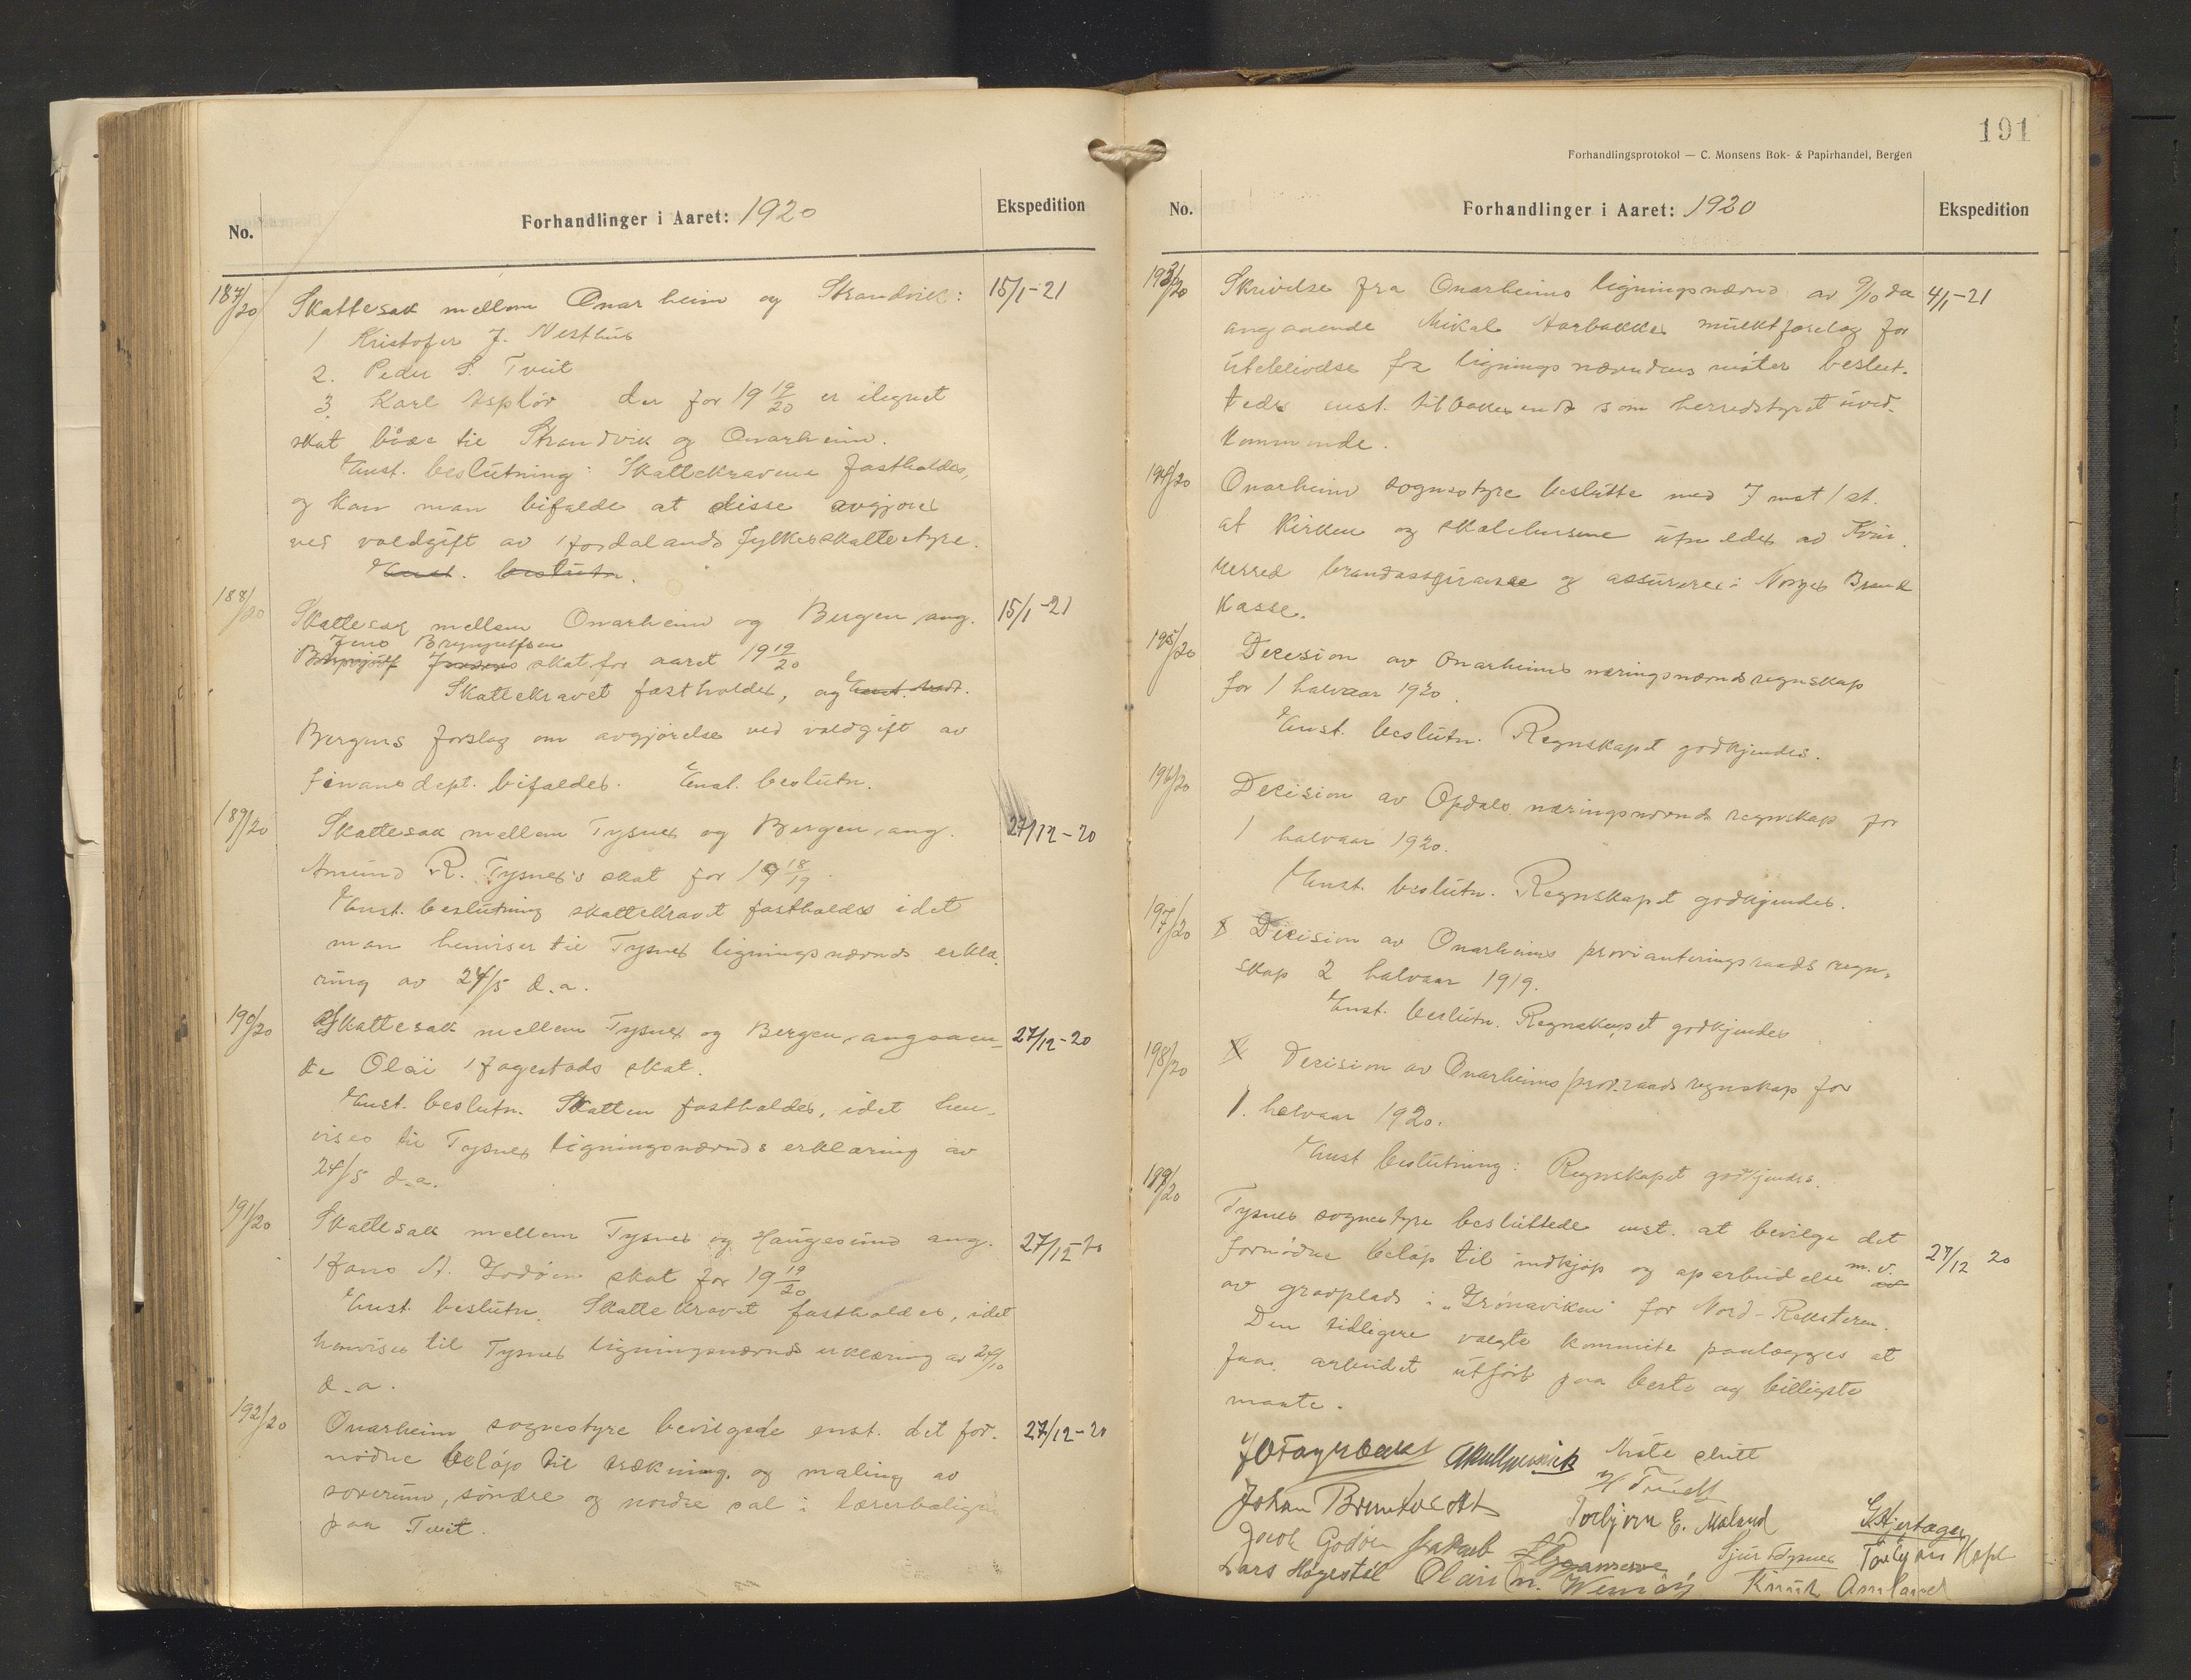 No.
Forhandlinger i Aaret: 1920
Ekspedition
187/20
Skattesak mellem Onarheim og Strandvik:
15/1-21
1 Kristofer J. Nesthus
2. Peder S. Tveit
3. Karl der for 19 19/20 er ilignet
skat både til Strandvik og Onarheim.
Enst. beslutning: Skattekravene fastholdes,
og kan man bifalde at disse avgjores
ved voldgift av Hordalands fylkesskattestyre.
Enst. beslutn.
188/20
Skattesak mellem Onarheim og Bergen, ang.
15/1-21
Jens Brynjulfsen
Brynjulf Jensens skat for aaret 19 19/20
Skattekravet fastholdes, og Enst. vedt.
Bergens forslag om avgjörelse ved voldgift av
finansdept. bifaldes. Enst. beslutn.
189/20
Skattesak mellem Tysnes og Bergen, ang.
27/12-20
Amund R. Tysnes's skat for 19 18/19.
Enst. beslutning skattekravet fastholdes idet
man henviser til Tysnes ligningsnævnds erklæ-
ring av 24/5 d.a.
190/20
Skattesak mellem Tysnes og Bergen, angaaen-
27/12-20
de Olai Hagestads skat.
Enst. beslutn. Skatten fastholdes, idet hen-
vises til Tysnes ligningsnævnds erklæring av
24/5 d.a.
191/20
Skattesak mellem Tysnes og Haugesund ang.
27/12-20
Hans A. Godöen skat for 19 19/20
Enst. beslutn. Skattekravet fastholdes, idet
henvises til Tysnes ligningsnævnds erklæring av
d.a.
192/20
Onarheim sognestyre bevilgede enst. det for-
27/12-20
nödne belöp til trækning og maling av
soverum, söndre og nordre sal i lærerboligen
paa Tveit.
191
Forhandlingsprotokol — C. Monsens Bok- & Papirhandel, Bergen
No.
Forhandlinger i Aaret: 1920
Ekspedition
193/20
Skrivelse fra Onarheims ligningsnævnd av 9/10 da
4/1-21
angaaende Mikal Aarbakkes mulktforelæg for
uteblivelse fra ligningsnævndens möter beslut-
tedes enst. tilbakesendt som herredstyret uved-
kommende.
194/20
Onarheim sognestyre beslutte med 7 mot 1 st.
at kirken og skolehusene utmeldes av Kvin-
herred brandassurance og assureres i Norges Brand-
kasse.
195/20
Decision av Onarheims næringsnævnds regnskap
for 1 halvaar 1920.
Enst. beslutn. Regnskapet godkjendes.
196/20
Decision av Opdals næringsnævnds regnskap for
1 halvaar 1920.
Enst. beslutn. Regnskapet godkjendes.
197/20
X Decision av Onarheims provianteringsraads regn-
skap 2 halvaar 1919.
Enst. beslutn. Regnskapet godkjendes
198/20
X Decision av Onarheims prov.raads regnskap for
1. halvaar 1920.
Enst beslutning: Regnskapet godkjendes.
199/20
Tysnes sognestyre besluttede enst. at bevilge det
fornödne belöp til indkjöp og oparbeidelse m.v.
27/12 20
av gravplads i "Grönaviken" for Nord-Reksteren.
Den tidligere valgte kommite paalægges at
faa arbeidet utfört paa beste og billigste
maate.
Möte slutt
Johan
Torbjørn E. Maland
Jacob Godöen Jakob
Sjur Tysnes Torbjørn Hope
Lars Høgestöl Olai
Knut Amland